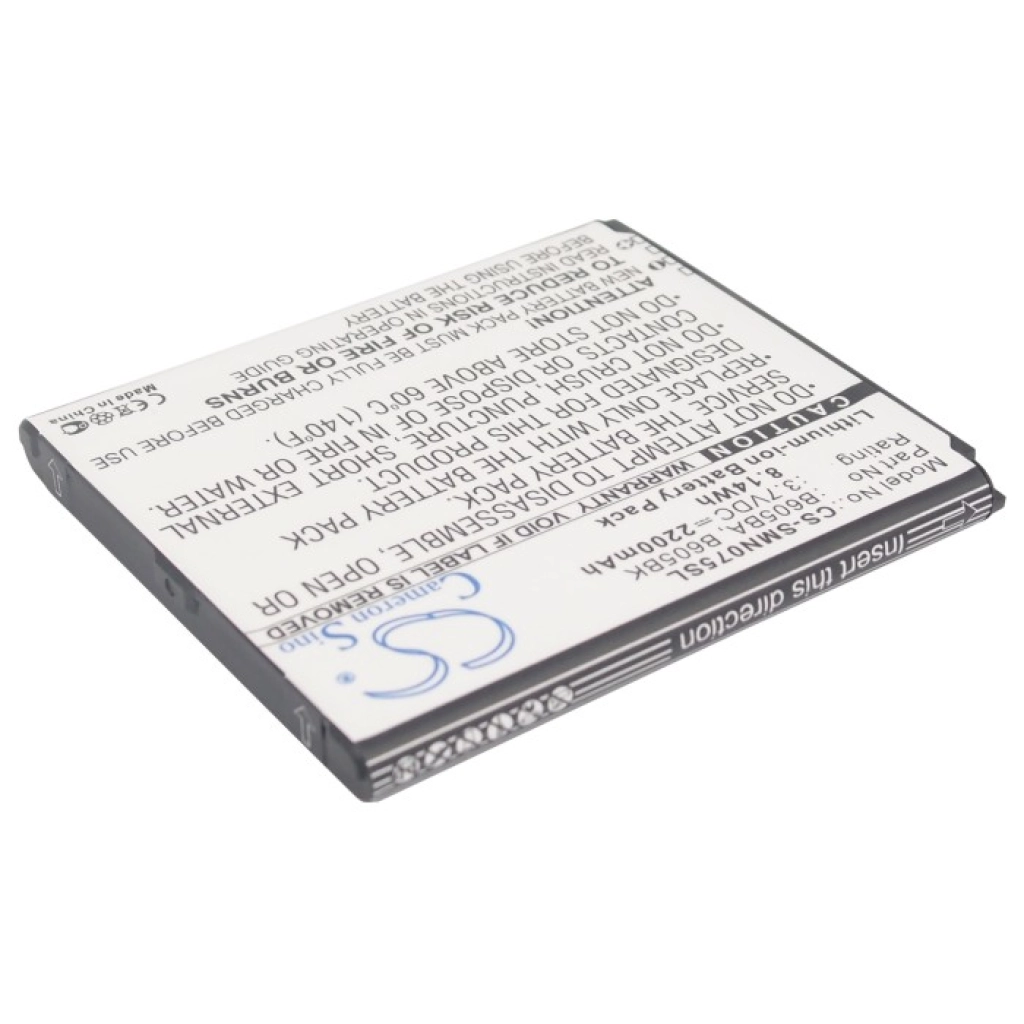 Model No.: CS-SMN075SL
Part No : B605BA, B605BK
Rating : 3.7VDC⎓2200mAh
8.14Wh
Lithium-ion Battery Pack
CAUTION WARRANTY VOID IF LABEL IS REMOVED
•DO NOT ATTEMPT TO DISASSEMBLE, OPEN OR
SERVICE THE BATTERY PACK
•REPLACE ONLY WITH THE BATTERY PACK
DESIGNATED FOR THIS PRODUCT.
•DO NOT CRUSH, PUNCTURE, SHORT EXTERNAL
CONTACTS OR DISPOSE OF IN FIRE OR WATER.
•DO NOT STORE ABOVE 60°C (140°F).
ATTENTION!
NEW BATTERY PACK MUST BE FULLY CHARGED BEFORE USE
TO REDUCE RISK OF FIRE OR BURNS
READ INSTRUCTIONS IN OPERATING GUIDE
BEFORE USING THE BATTERY
CE
Made in China
CS
Cameron Sino
®
Insert this direction